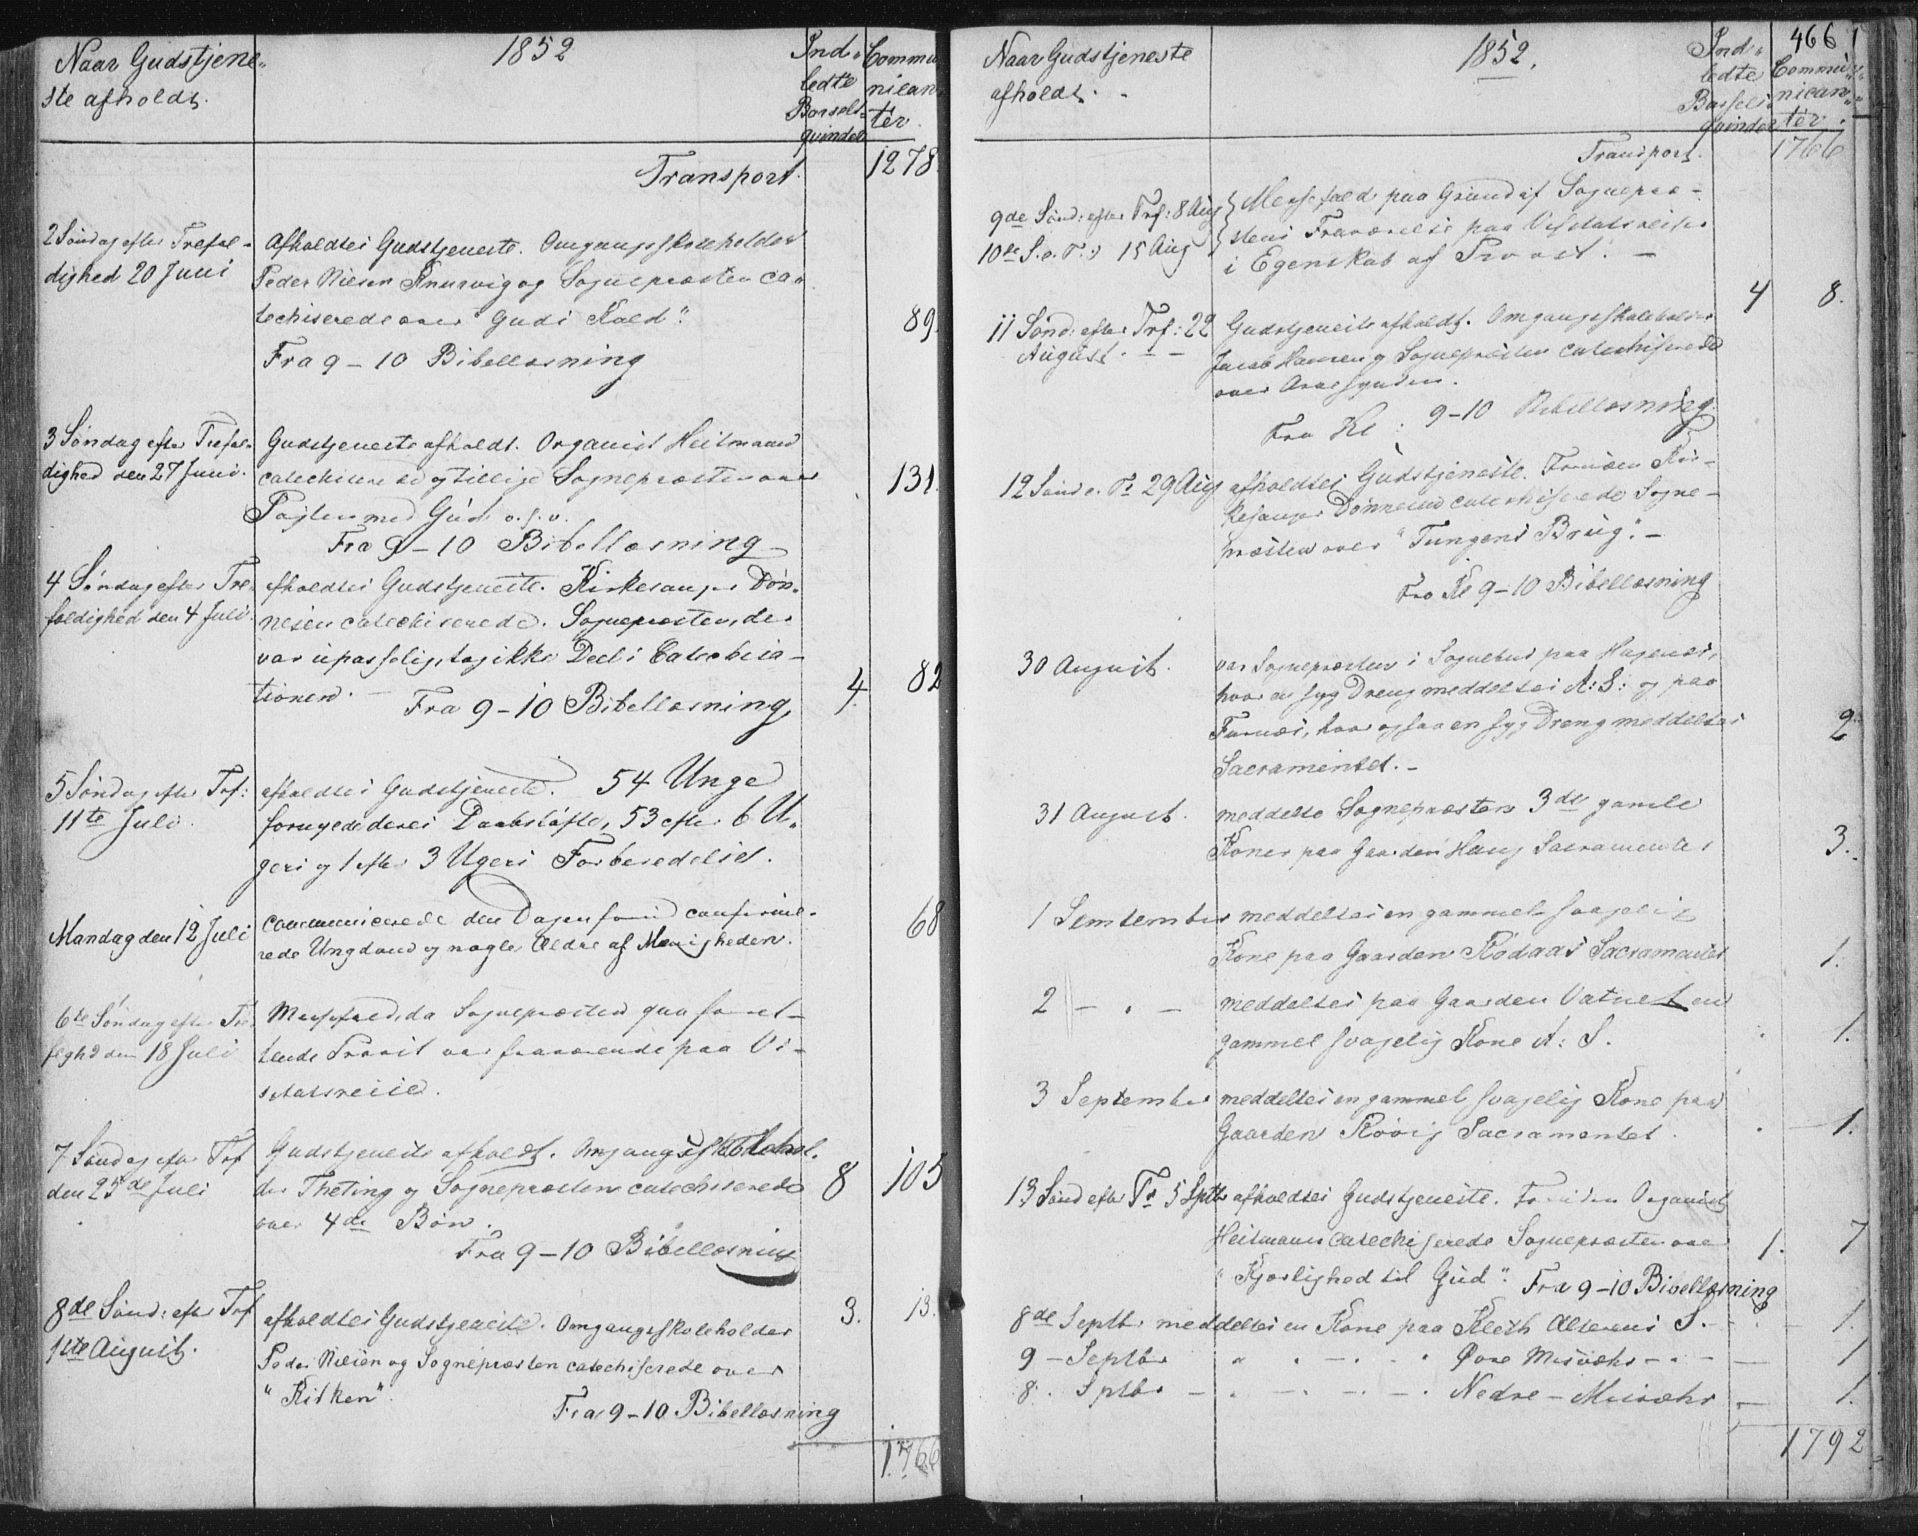 Naar Gudstjene-
ste afholdt.
1852
Ind-
ledte
Barsels-
qvinder
Commu
nican
ter
Transport. 1278.
2 Søndag efter Trefol-
dighed 20 Juni
Afholdtes Gudstjeneste. Omgangsskoleholder
Peder Nielsen Knurvig og Sognepræsten ca-
techiserede over "Guds Kald".
89.
Fra 9-10 Bibellæsning
3 Søndag efter Trefol-
dighed den 27 Juni.
Gudstjeneste afholdt. Organist Heitmann
catechiserede og tillige Sognepræsten over
131.
Pagten med Gud o.s.v.
Fra 9-10 Bibellæsning
4 Søndag efter Tre-
foldighed den 4 Juli
afholdtes Gudstjeneste. Kirkesanger Døn-
nesen catechiserede. Sognepræsten, der
var upasselig, tog ikke Deel i Catechisa-
tionen. Fra 9-10 Bibellæsning
4. 82
5 Søndag efter Tref:
11te Juli.
afholdtes Gudstjeneste. 54 Unge
fornyede deres Daabsløfte, 53 efter 6 U-
gers og 1 efter 3 Ugers Forberedelse.
Mandag den 12 Juli
communicerede den Dagen forud confirme-
rede Ungdom og nogle Ældre af Menigheden.
68
6te Søndag efter Tre
fighd den 18 Juli
Messefald, da Sognepræsten qua forret-
tende Provst var fraværende paa Vi-
sitatsreise.
7 Søndag efter Tref
den 25de Juli
Gudstjeneste afholdt. Omgangsskolehol-
der Theting og Sognepræsten catechiserede
8 105
over 4de Bøn.
Fra 9-10 Bibellæsning
8de Sønd: efter Tref
1ste August.
afholdtes Gudstjeneste. Omgangsskoleholder
3. 13.
Peder Nielsen og Sognepræsten catechiserede over
"Kirken".
Fra 9-10 Bibellæsning
1766
Naar Gudstjeneste
afholdt.
1852.
Ind-
ledte
Barsels
qvinder
466
Commu
nican
ter.
Transport. 1766
9de Sønd: efter Trf: 8 Aug
10de S. e. T. 15 Aug
Messefald paa Grund af Sognepræ-
stens Fraværelse paa Visitatsreiser
i Egenskab af Provst.
11 Sønd: efter Trf: 22
August.
Gudstjeneste afholdt. Omgangsskoleholder
4 8.
Jacob Hansen og Sognepræsten catechiserede
over Arvesynden.
Fra Kl: 9-10 Bibellæsning
12 Sønd e. Tr 29 Aug
afholdtes Gudstjeneste. Foruden Kir-
kesanger Dønnesen catechiserede Sogne-
præsten over "Tungens Brug".
Fra Kl 9-10 Bibellæsning
30 August.
var Sognepræsten i Sognebud paa Hagenæs,
hvor en syg Dreng meddeltes A: S: og paa
Furnæs, hvor ogsaa en syg Dreng meddeltes
2.
Sacramentet.
31 August.
meddelte Sognepræsten 3de gamle
Koner paa Gaarden Haug Sacramentet
3.
1 Semtember meddeltes en gammel svagelig
Kone paa Gaarden Rødaas Sacramentet
1.
2 - . - meddeltes paa Gaarden Vatnet en
gammel svagelig Kone A: S.
1.
3 September meddeltes en gammel svagelig Kone paa
Gaarden Røvig Sacramentet.
1.
13 Sønd efter Tr 5 Sptbr afholdtes Gudstjeneste. Foruden Organist
Heitmann catechiserede Sognepræsten over
1. 7
"Kjærlighed til Gud". Fra 9-10 Bibellæsning
8de Septbr meddeltes en Kone paa Kleth Alterens S. 1.
9 - Septbr " . - . . Øvre Misvæhr - . - 1
8. Sptbr - . - . - . Nedre - Misvæhr 1.
1792